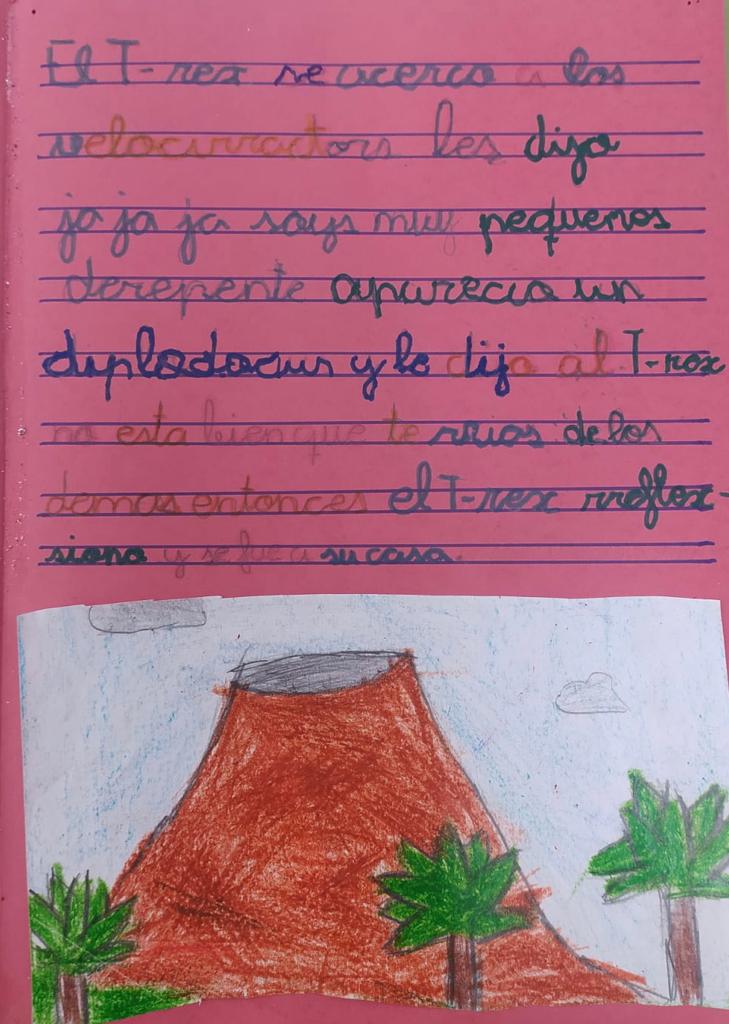 El T-rex se acerco a los
velocirractors les dijo
ja ja ja soys muy pequenos
derepente aparecio un
diplodocus y le dijo al T-rex
no esta bien que te rrias de los
demas entonces el T-rex rreflex-
siono y se fue a su casa.